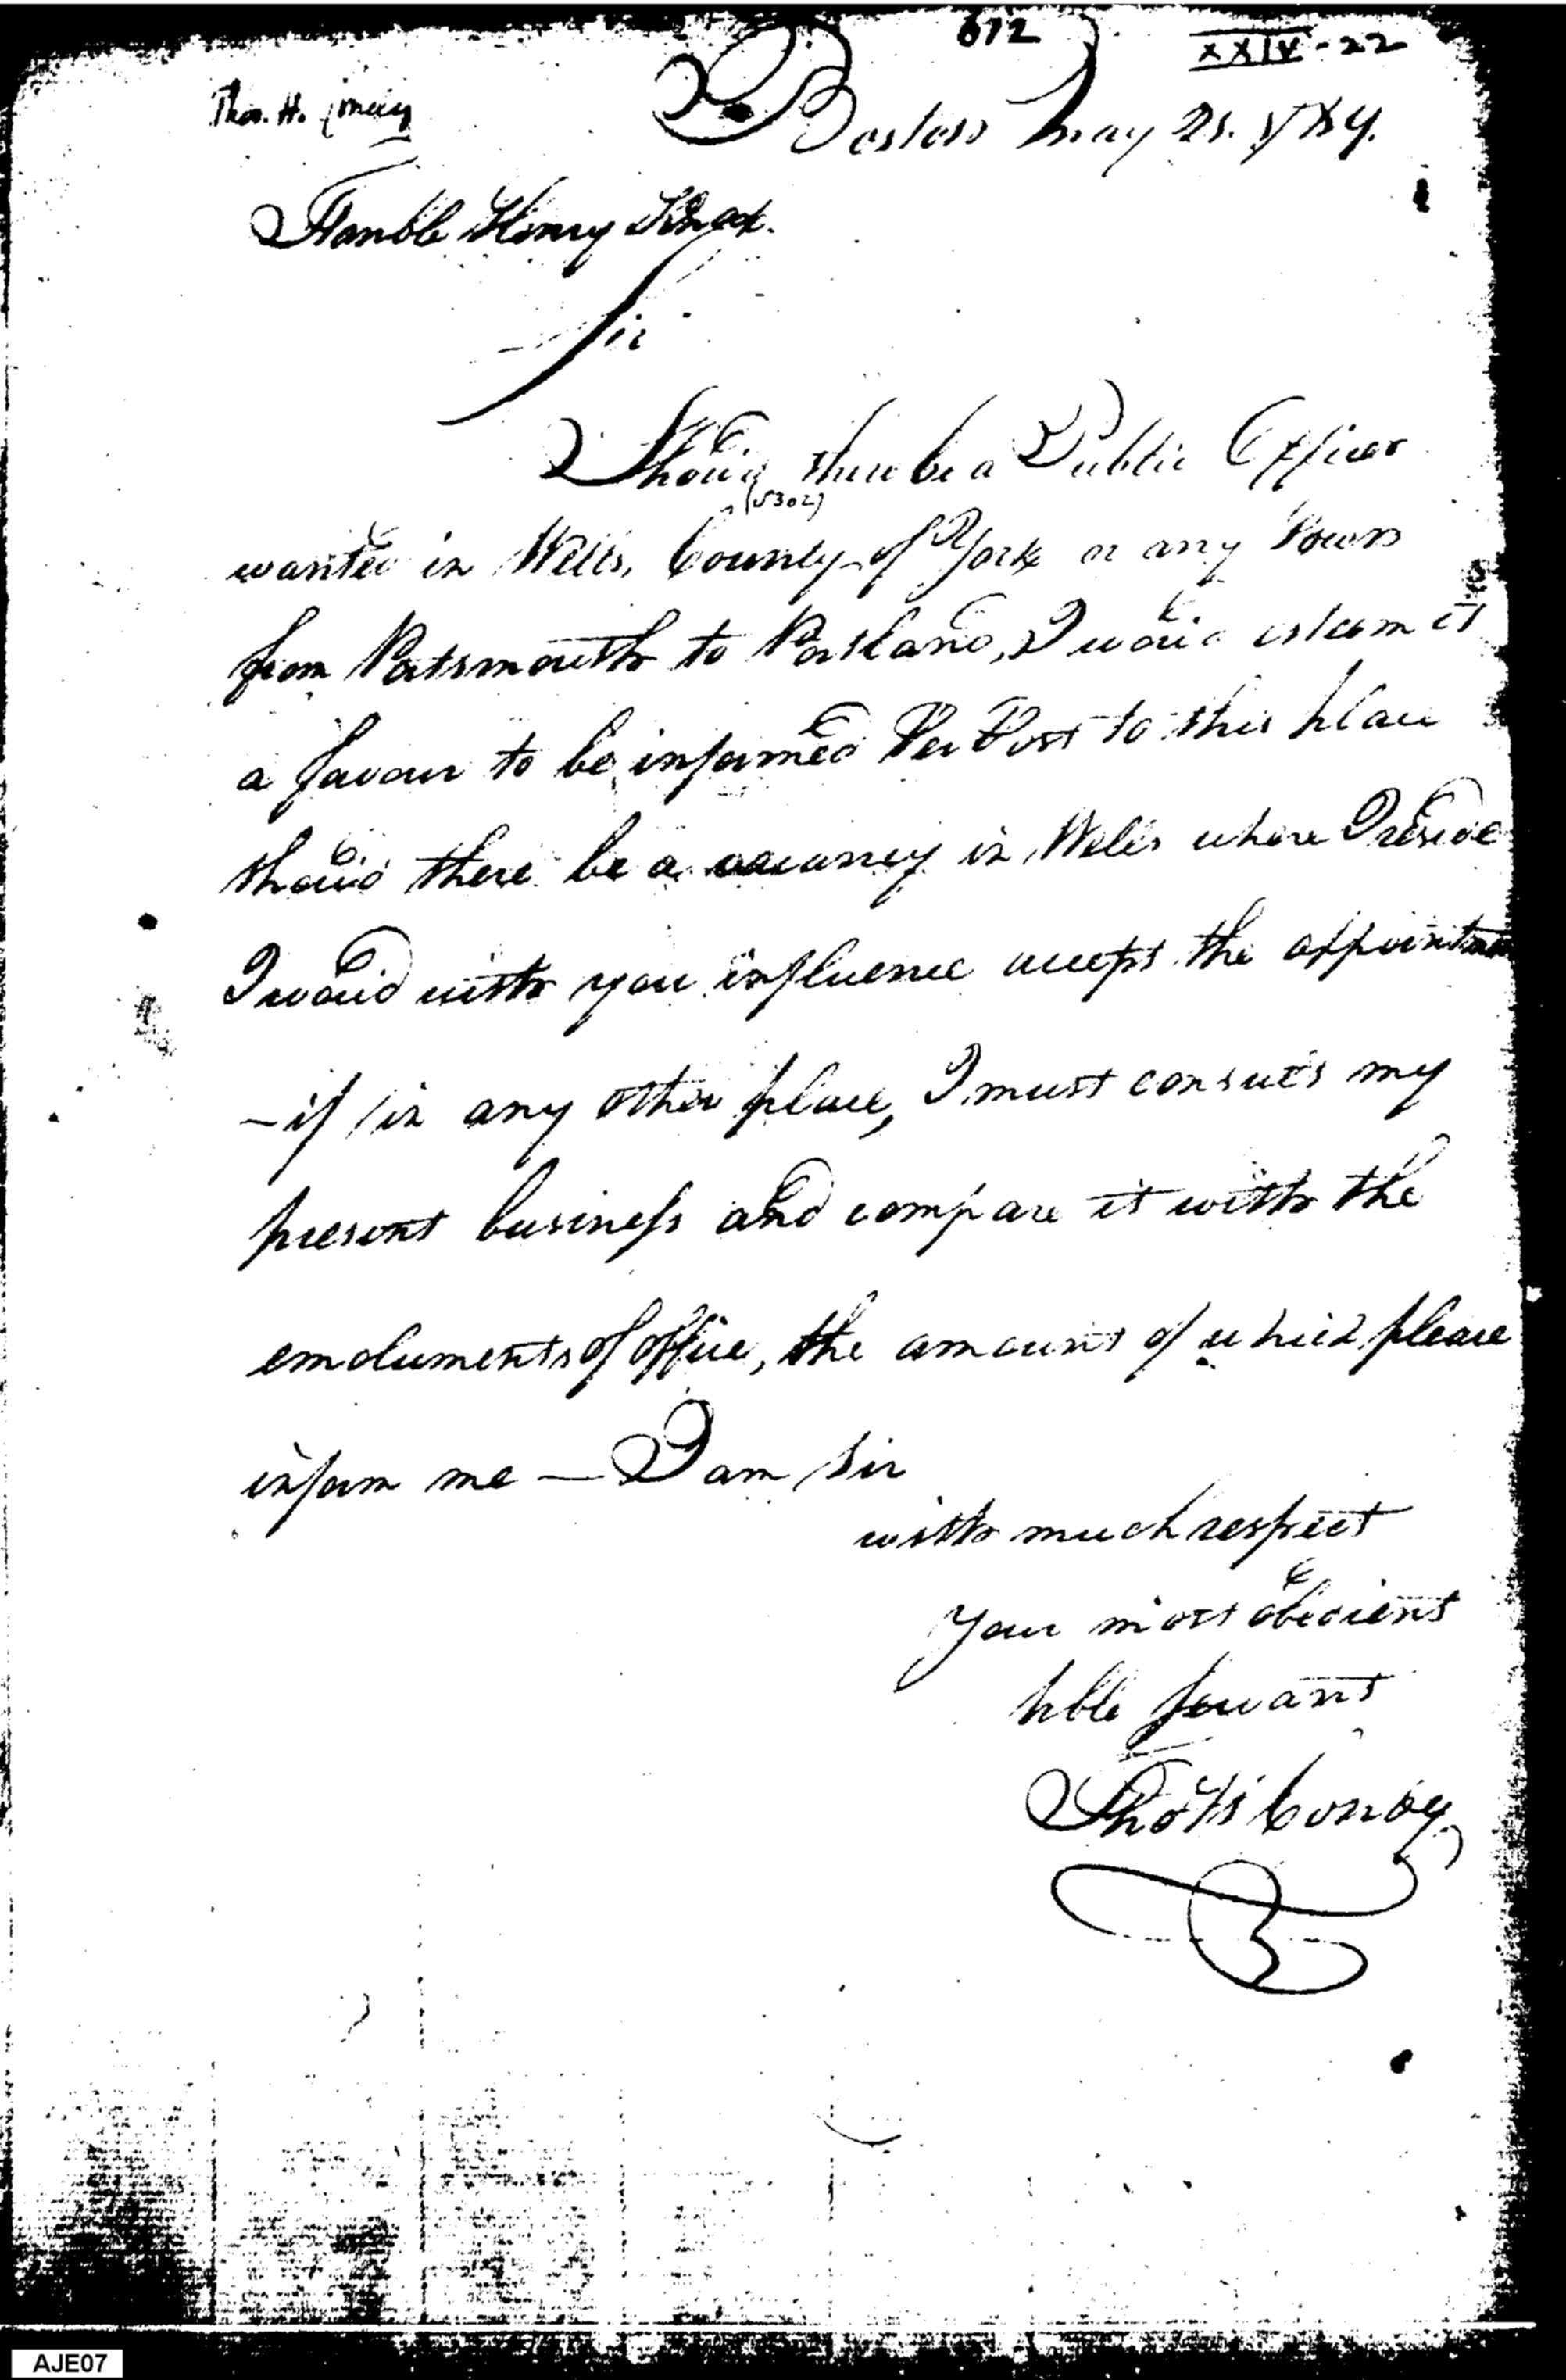 672
XXIV-22
Thos. H.
Boston May 21. 1789.
Honble Henry Knox.
Sir
Shou'd there be a Public Officer
(5302)
wanted in Wells, County of York or any Town
from Portsmouth to Portland, I wou'd esteem it
a favour to be informed Per Post to this place
shou'd there be a vacancy in Wells where I reside
I wou'd with you influence accept the appointment
– if in any other place, I must consult my
present business and compare it with the
emoluments of office, the amount of which please
inform me — I am Sir
with much respect
Your most obedient
hble Servant
Thos H Condy
AJE07